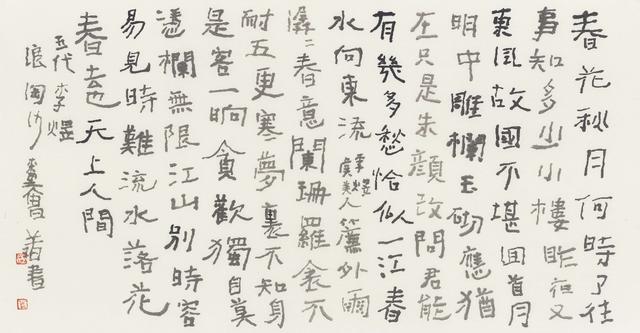 春花秋月何時了往
事知多少小樓昨夜又
東風故國不堪回首月
明中雕欄玉砌應猶
在只是朱顏改問君能
有幾多愁恰似一江春
水向東流 李煜虞美人 簾外雨
潺〻春意闌珊羅衾不
耐五更寒夢裏不知身
是客一晌貪歡獨自莫
憑欄無限江山別時容
易見時難流水落花
春去也天上人間
五代李煜
浪淘沙 書